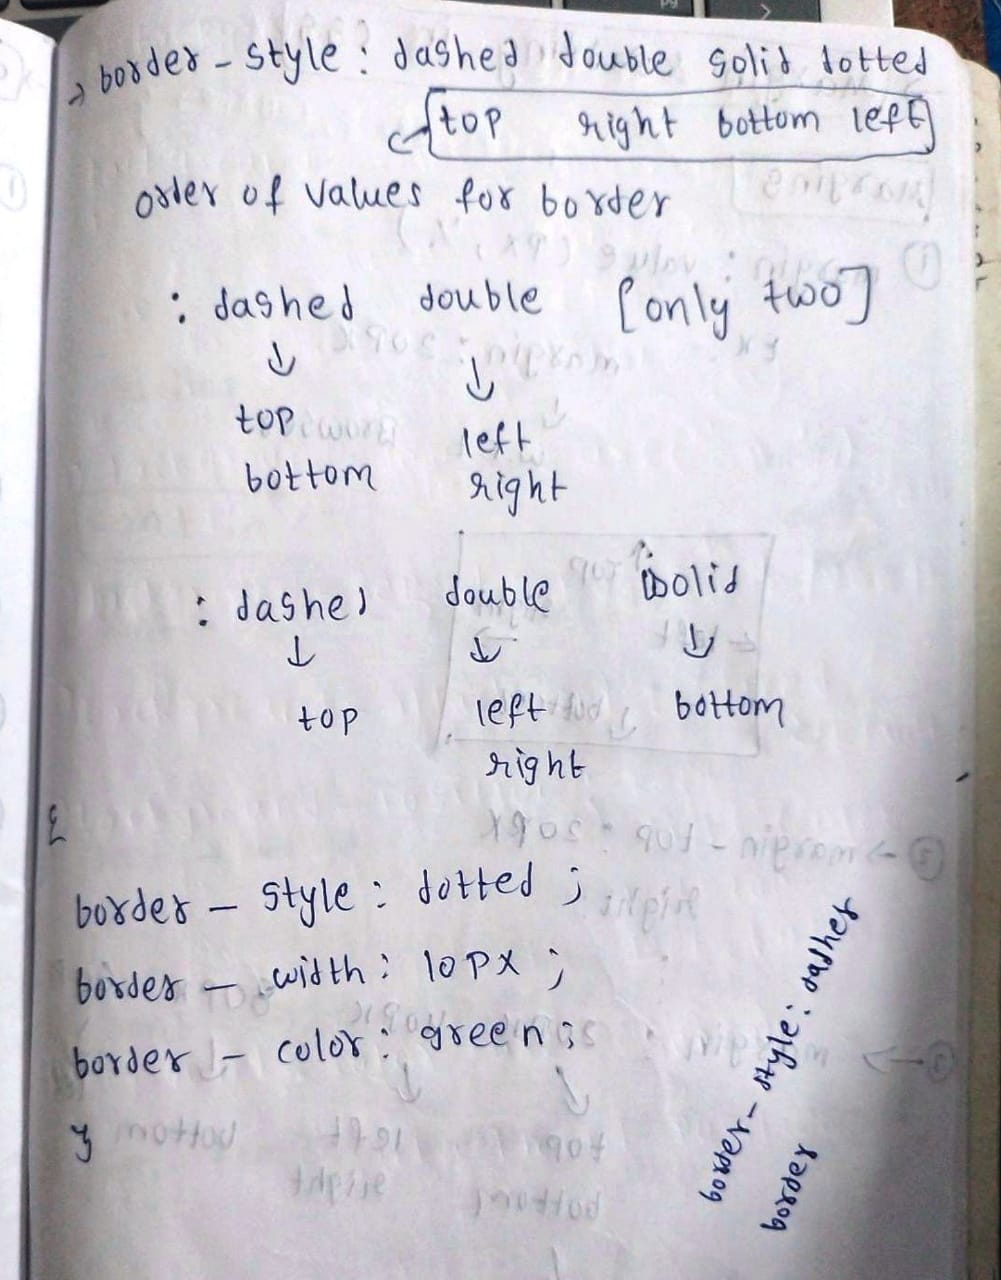 → border - style : dashed double solid dotted
[top right bottom left]
order of values for border
: dashed double [only two]
↓ ↓
top left
bottom right
: dashed double solid
↓ ↓ ↓
top left bottom
right
{
border - style : dotted ;
border - width : 10px ;
border - color : green ;
}
border - style : dashed
border